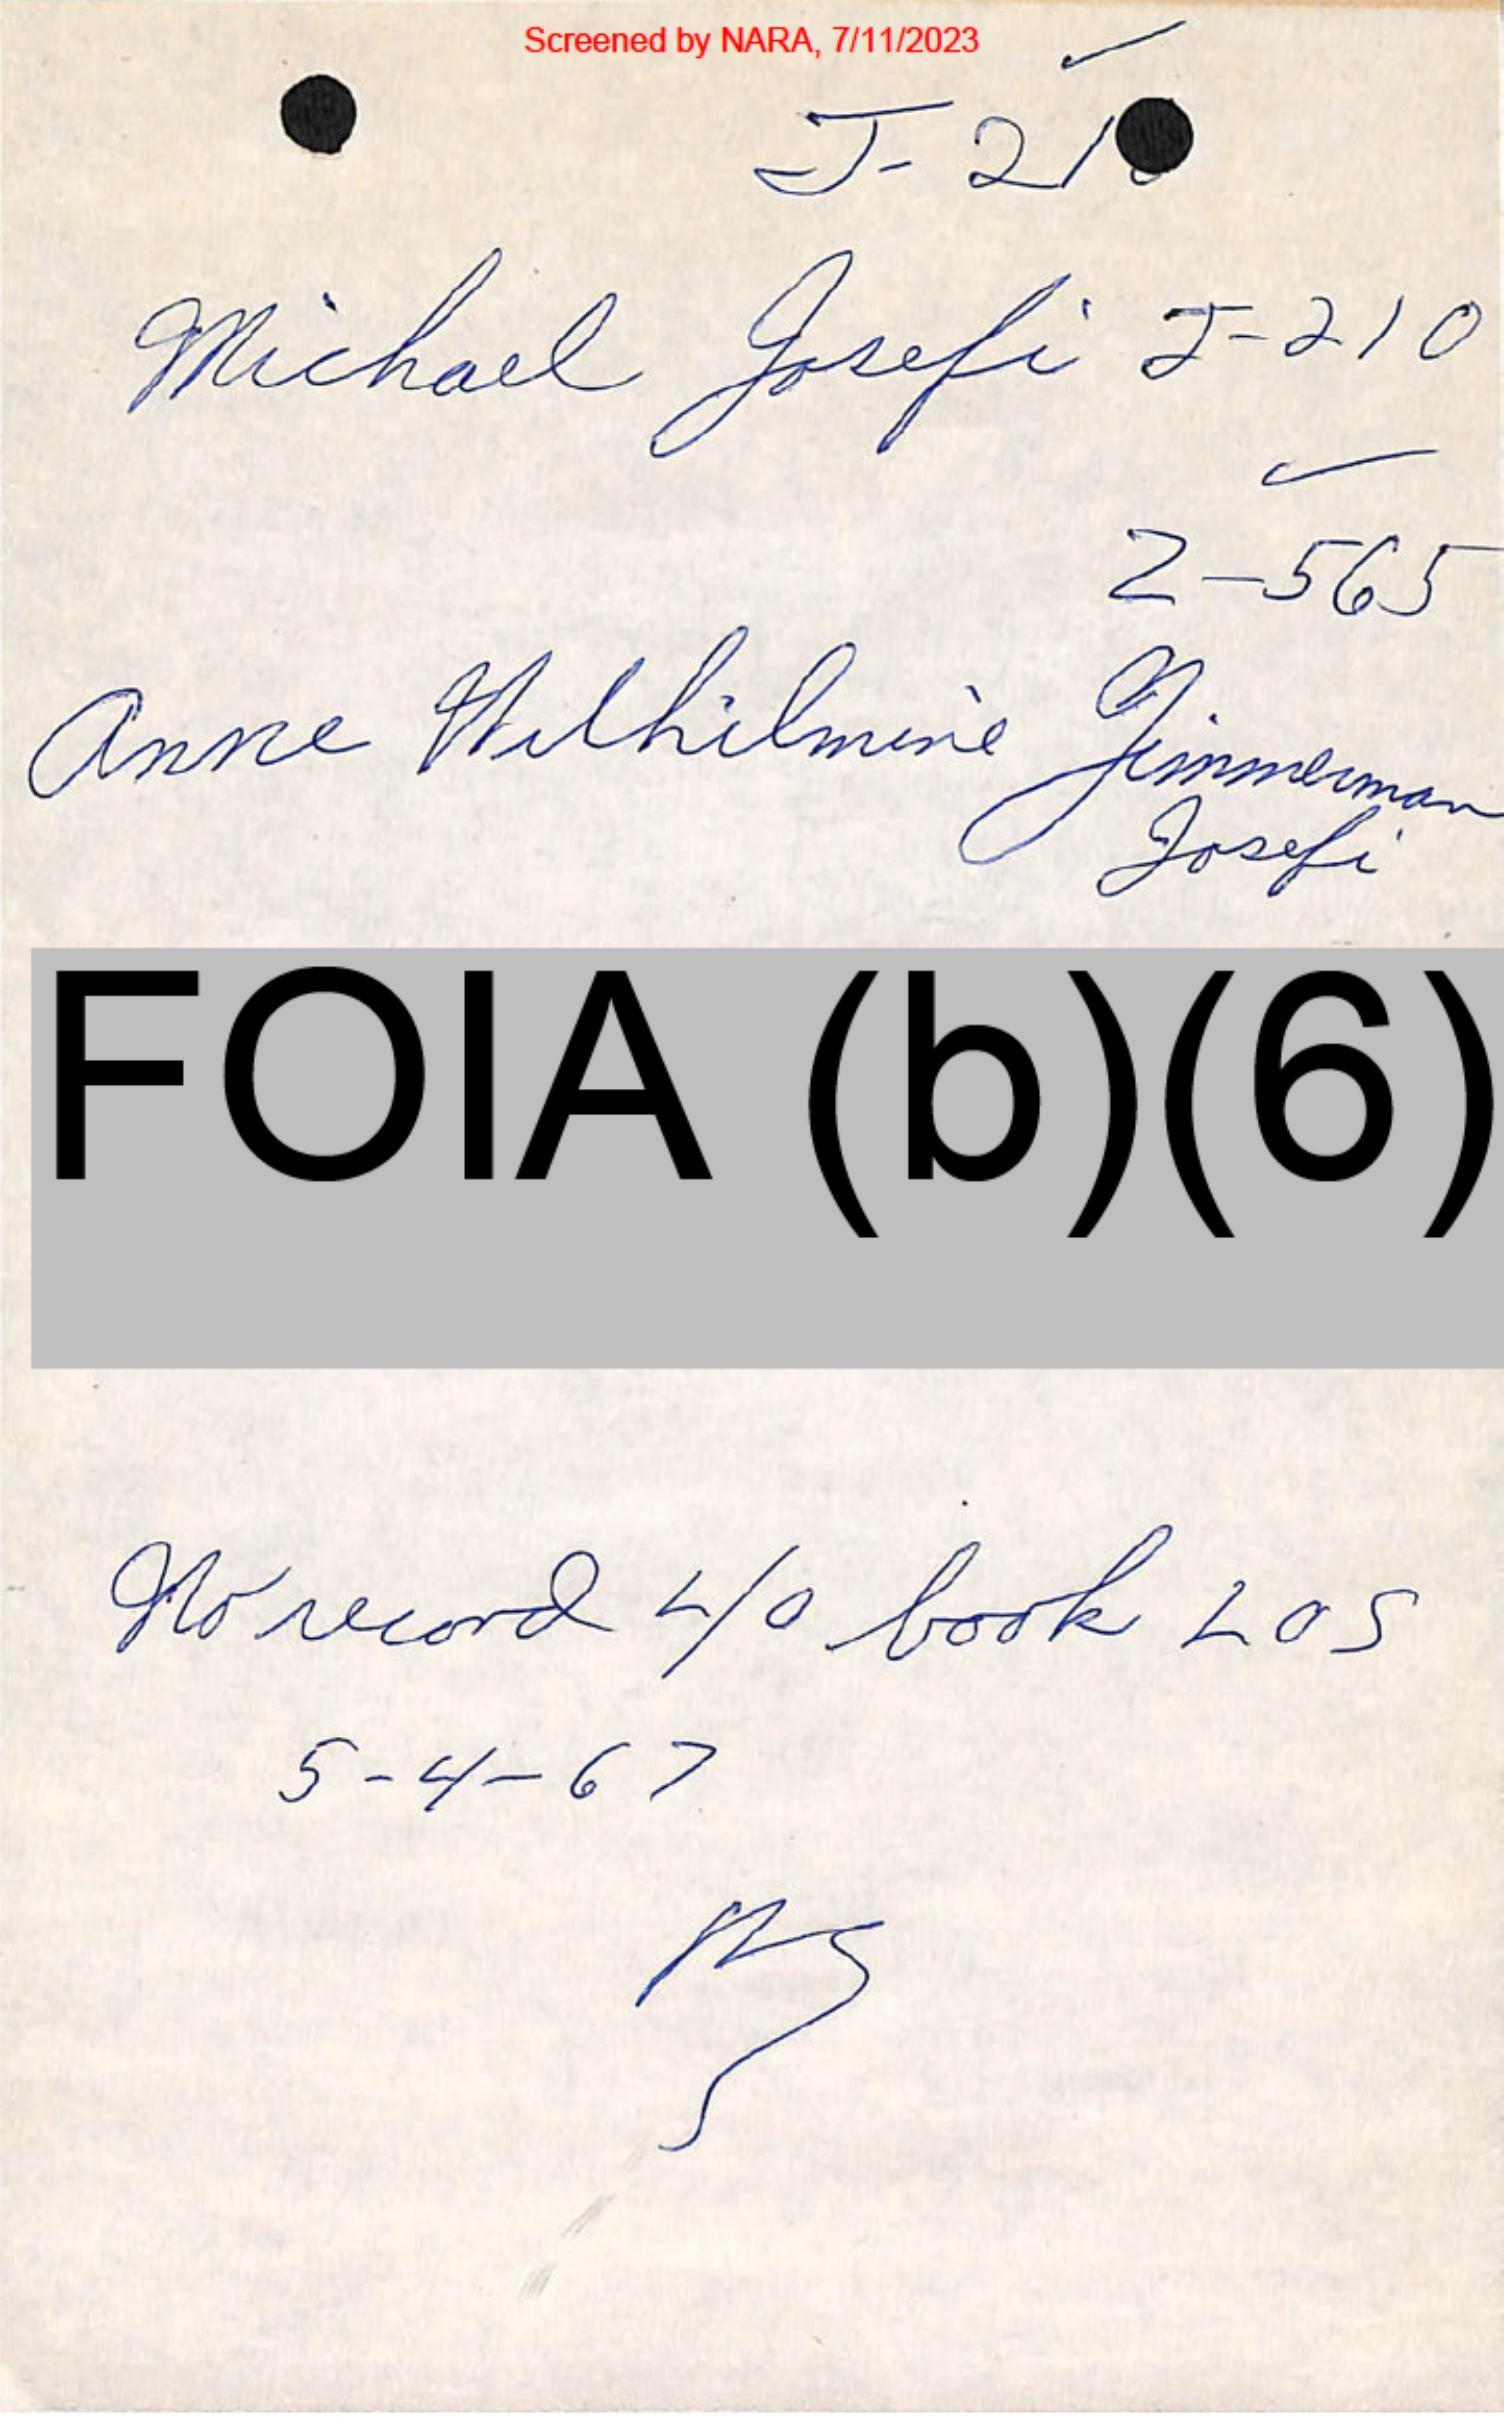 Screened by NARA, 7/11/2023
J-21
Michael Josefi J-210
Z-565
Anne Wilhilmine Zimmerman
Josefi
FOIA (b)(6)
No record L/O book LOS
5-4-67